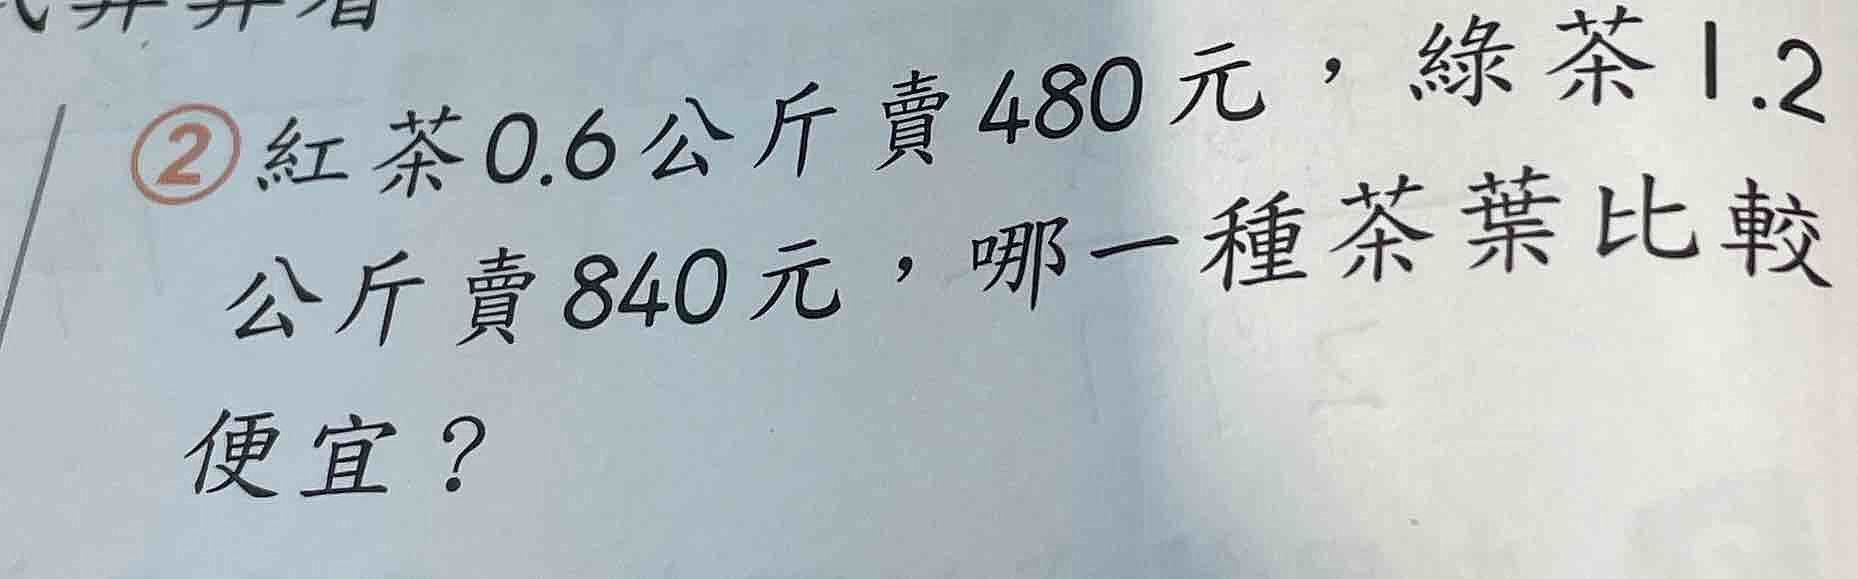 ②紅茶0.6公斤賣480元，綠茶1.2
公斤賣840元，哪一種茶葉比較
便宜？